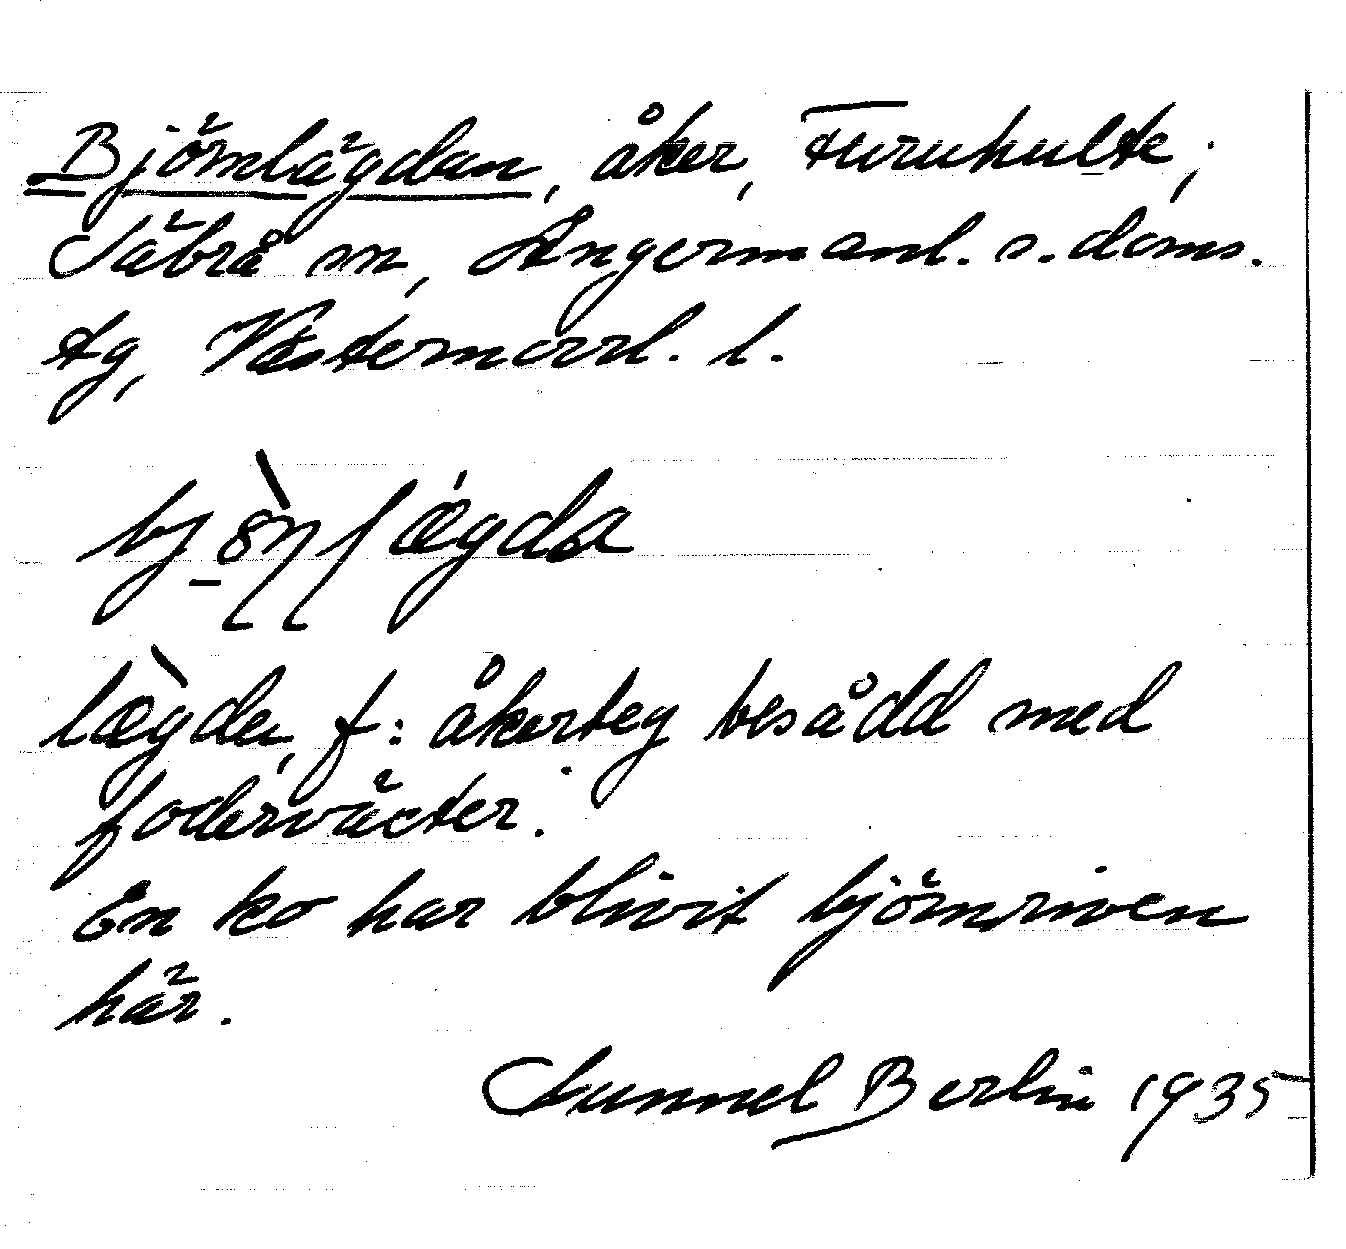 Björnlägdan, åker, Furuhulte,
Säbrå sn, Ångermanl. s. doms.
tg, Västernorrl. l.
lægde, f: åkerteg besådd med
foderväcter.
En ko har blivit björnriven
här.
Gunnel Berlin 1935